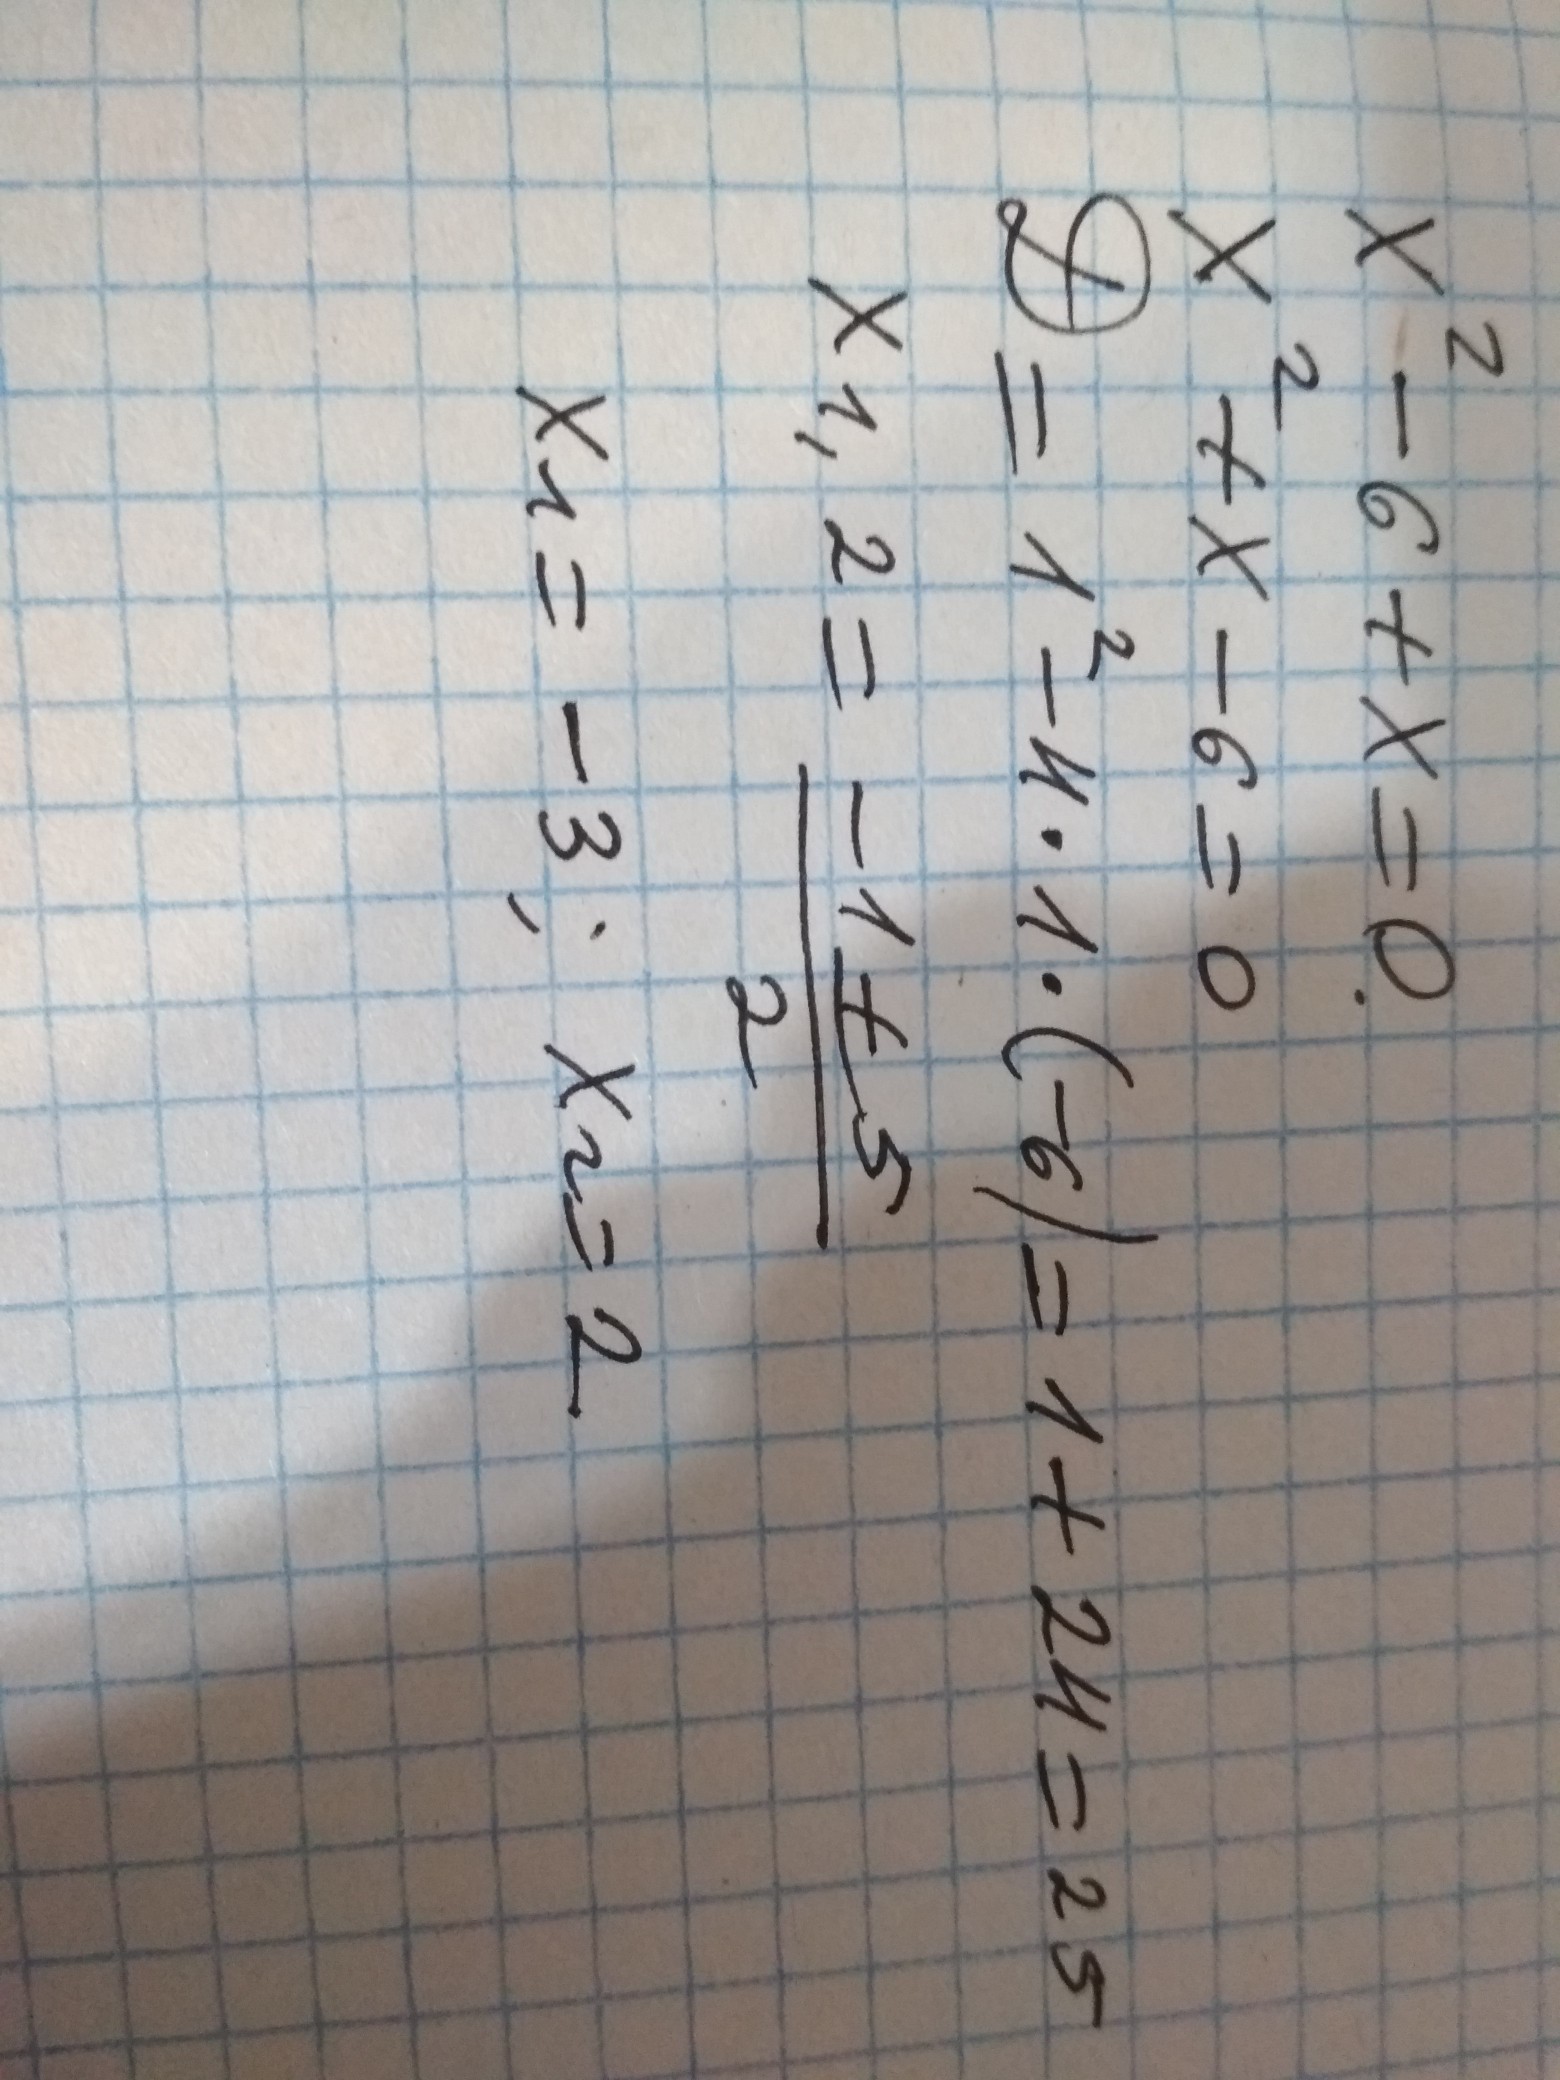 x² - 6 + x = 0.
x² + x - 6 = 0
D = 1² - 4 · 1 · (-6) = 1 + 24 = 25
x1,2 = (-1 ± 5) / 2
x1 = -3; x2 = 2